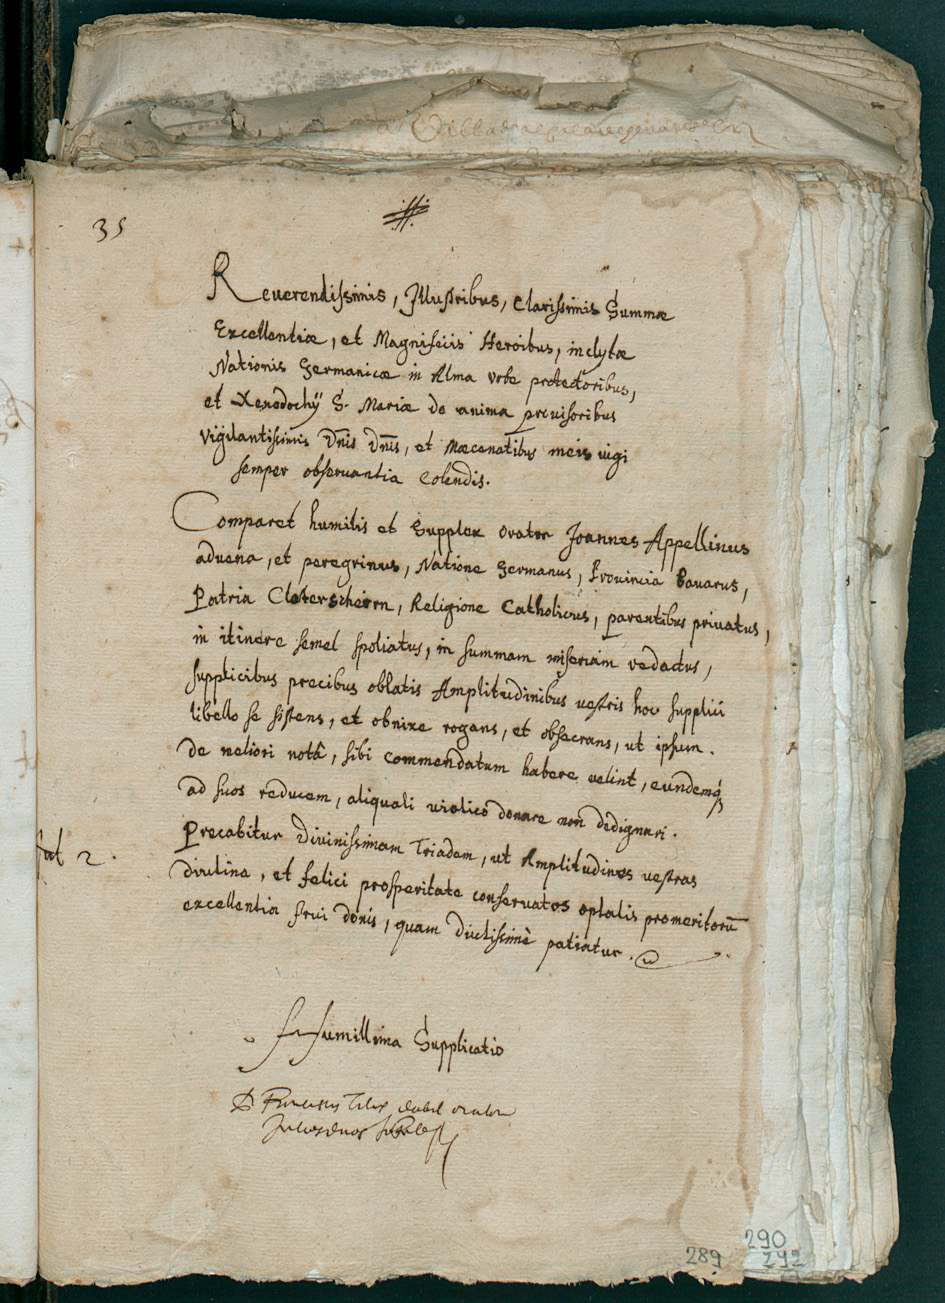 35
Reuerendissimis, Illustribus, Clarissimis Summæ
Excellentiæ, et Magnificiis Heroibus, inclytæ
Nationis Germanicæ in Alma vrbe protectoribus,
et Xenodochÿ S. Mariæ de anima prouisoribus
Vigilantissimis Dnīs Dnīs, et Mæcenatibus meis iugi
semper obseruantia Colendis.
Comparet humilis et Supplex orator Joannes Appellinus
aduena, et peregrinus, Natione Germanus, Prouincia Bauarus,
Patria Closterscheirn, Religione Catholicus, parentibus priuatus,
in itinere semel spoliatus, in summam miseriam redactus,
supplicibus precibus oblatis Amplitudinibus vestris hoc supplici
libello se sistens, et obnixe rogans, et obsecrans, ut ipsum.
de meliori notâ, sibi commendatum habere velint, eundemq́
ad suos reducem, aliquali viatico donare non dedignari.
Precabitur Diuinissimam Triadem, ut Amplitudines vestras
diutina, et felici prosperitate conseruatos optatis promeritorū
excellentia frui donis, quam diutissimè patiatur.
2.
Humillima Supplicatio
D. orator
289
290
292